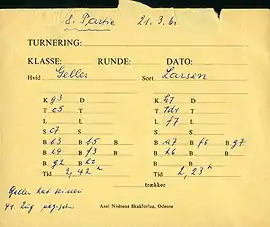 8. Partie 21.3.61
TURNERING:
KLASSE: RUNDE: DATO:
Hvid Geller Sort Larsen
K g3 D K G7 D
T c5 T T Td1 T
L L L f7 L
S c7 S S S
B b3 B b5 B B a7 B f6 B g7
B e4 B f3 B B h6 B B
B g2 B h2 B B B
Tid 2,42 Tid 2,23
trækker
Geller hat seinen
41. Zug
Axel Nielsens Skakforlag, Odense